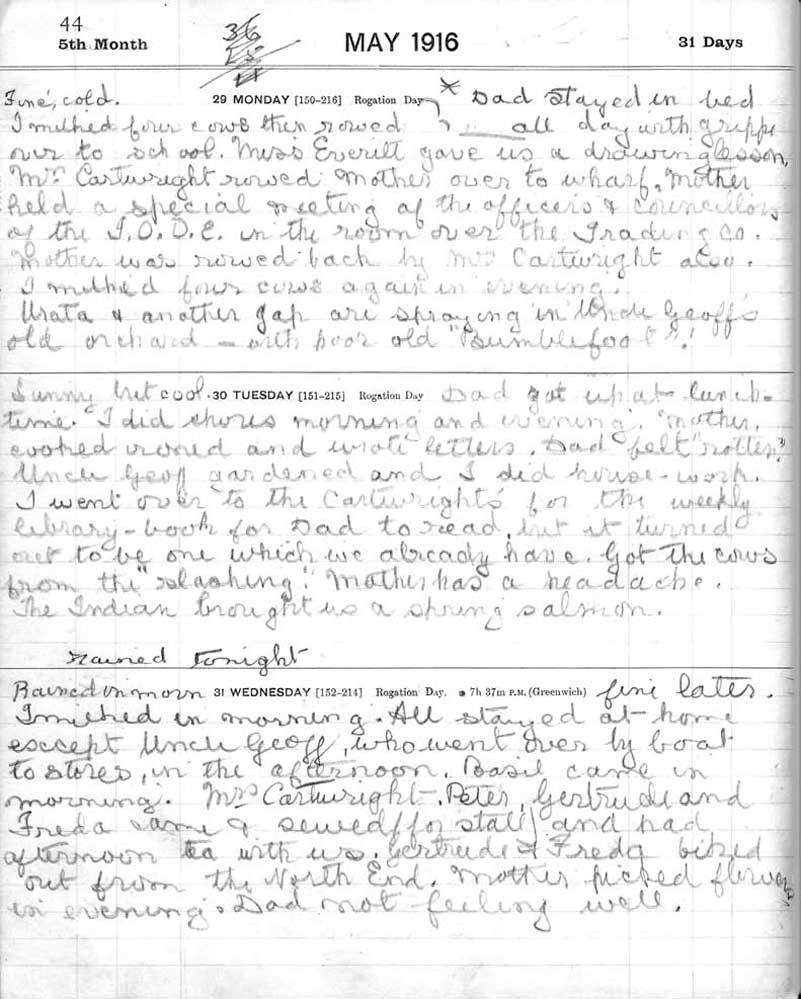 44
5th Month
36
MAY 1916
31 Days
Fine, cold. 29 MONDAY [150-216] Rogation Day * Dad stayed in bed
I milked four cows then rowed all day with grippe
over to school. Miss Everitt gave us a drawing lesson,
Mrs Cartwright rowed Mother over to wharf. Mother
held a special meeting of the officers & councillors
of the I.O.D.E. in the room over the Trading Co.
Mother was rowed back by Mrs Cartwright also.
I milked four cows again in evening.
Urata & another Jap are spraying in Uncle Geoff's
old orchard – with poor old "Bumblefoot"!
Sunny but cool. 30 TUESDAY [151-215] Rogation Day Dad got up at lunch-
time. I did chores morning and evening. Mother,
cooked ironed and wrote letters. Dad felt "rotten".
Uncle Geoff gardened and I did house-work.
I went over to the Cartwrights' for the weekly
library-book for Dad to read, but it turned
out to be one which we already have. Got the cows
from the "slashing". Mother has a headache.
The Indian brought us a spring salmon.
Rained tonight
Rained in morn 31 WEDNESDAY [152-214] Rogation Day. ● 7h 37m P.M. (Greenwich) fine later.
I milked in morning. All stayed at home
except Uncle Geoff, who went over by boat
to stores, in the afternoon. Basil came in
morning. Mrs Cartwright, Peter, Gertrude and
Freda came & sewed (for stall) and had
afternoon tea with us. Gertrude & Freda biked
out from the North End. Mother picked flowers
in evening. Dad not feeling well.